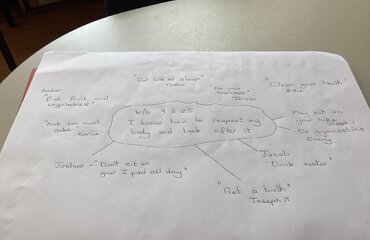 "Get lots of sleep"
"Clean your teeth"
Ellie
"Do your
exercises"
Amber
"Eat fruit and
vegetables"
W/b 9.6.25
I know how to respect my
body and look after it
"Not too much
cake"
"Play out on
your bike"
Joseph
"Do gymnastics"
Danny
Joshua - "Don't sit on
your I pad all day"
Jacob
"Drink water"
"Get a bath"
Joseph B